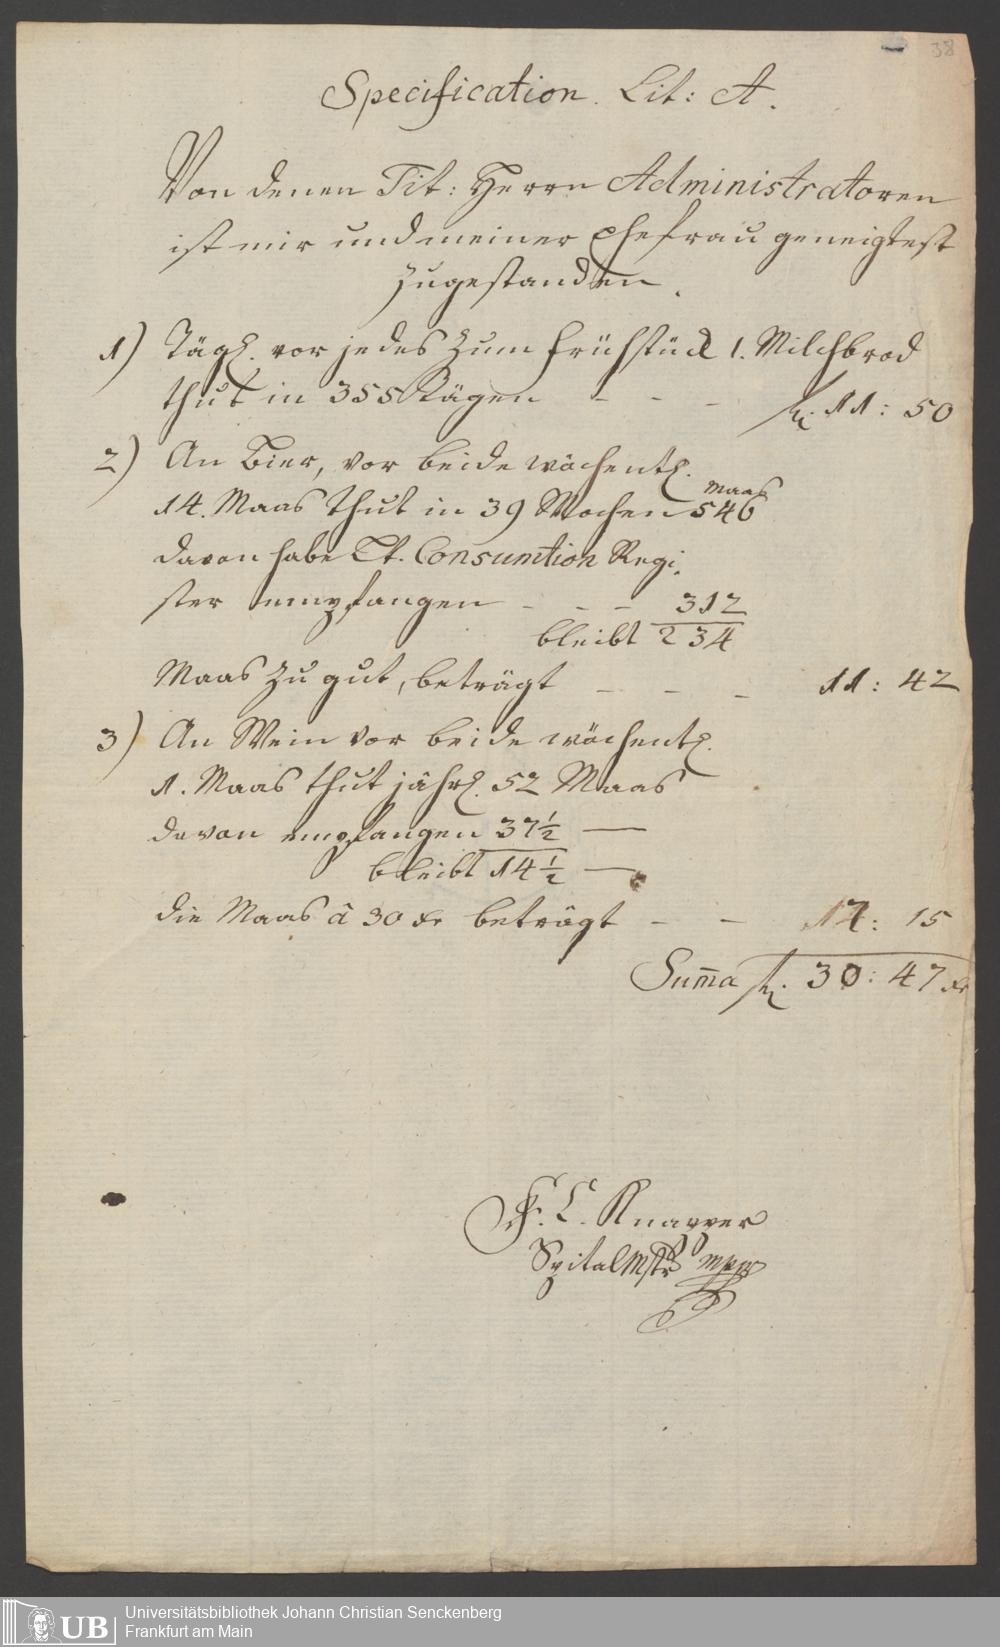 38
Specification. Lit: A.
Von denen Tit: Herrn Administratoren
ist mir und meiner Ehefrau geneigtest
zugestanden.
1) Tägl. vor jedes zum Frühstück 1. Milchbrod
thut in 355 Tägen - - - fl. 11: 50
2) An Bier, vor beide wöchentl.
14. Maas thut in 39 Wochen 546 Maas
davon habe Lt. Consumtion Regi-
ster empfangen - - - 312
bleibt 234
Maas zu gut, beträgt - - - 11: 42
3) An Wein vor beide wöchentl.
1. Maas thut jährl. 52 Maas
davon empfangen 37½ —
bleibt 14½ —
die Maas â 30 xr beträgt - - 7: 15
Sum̄a fl. 30: 47 xr
F. C. Knapper
SpitalMstr mpp
Universitätsbibliothek Johann Christian Senckenberg
Frankfurt am Main
UB